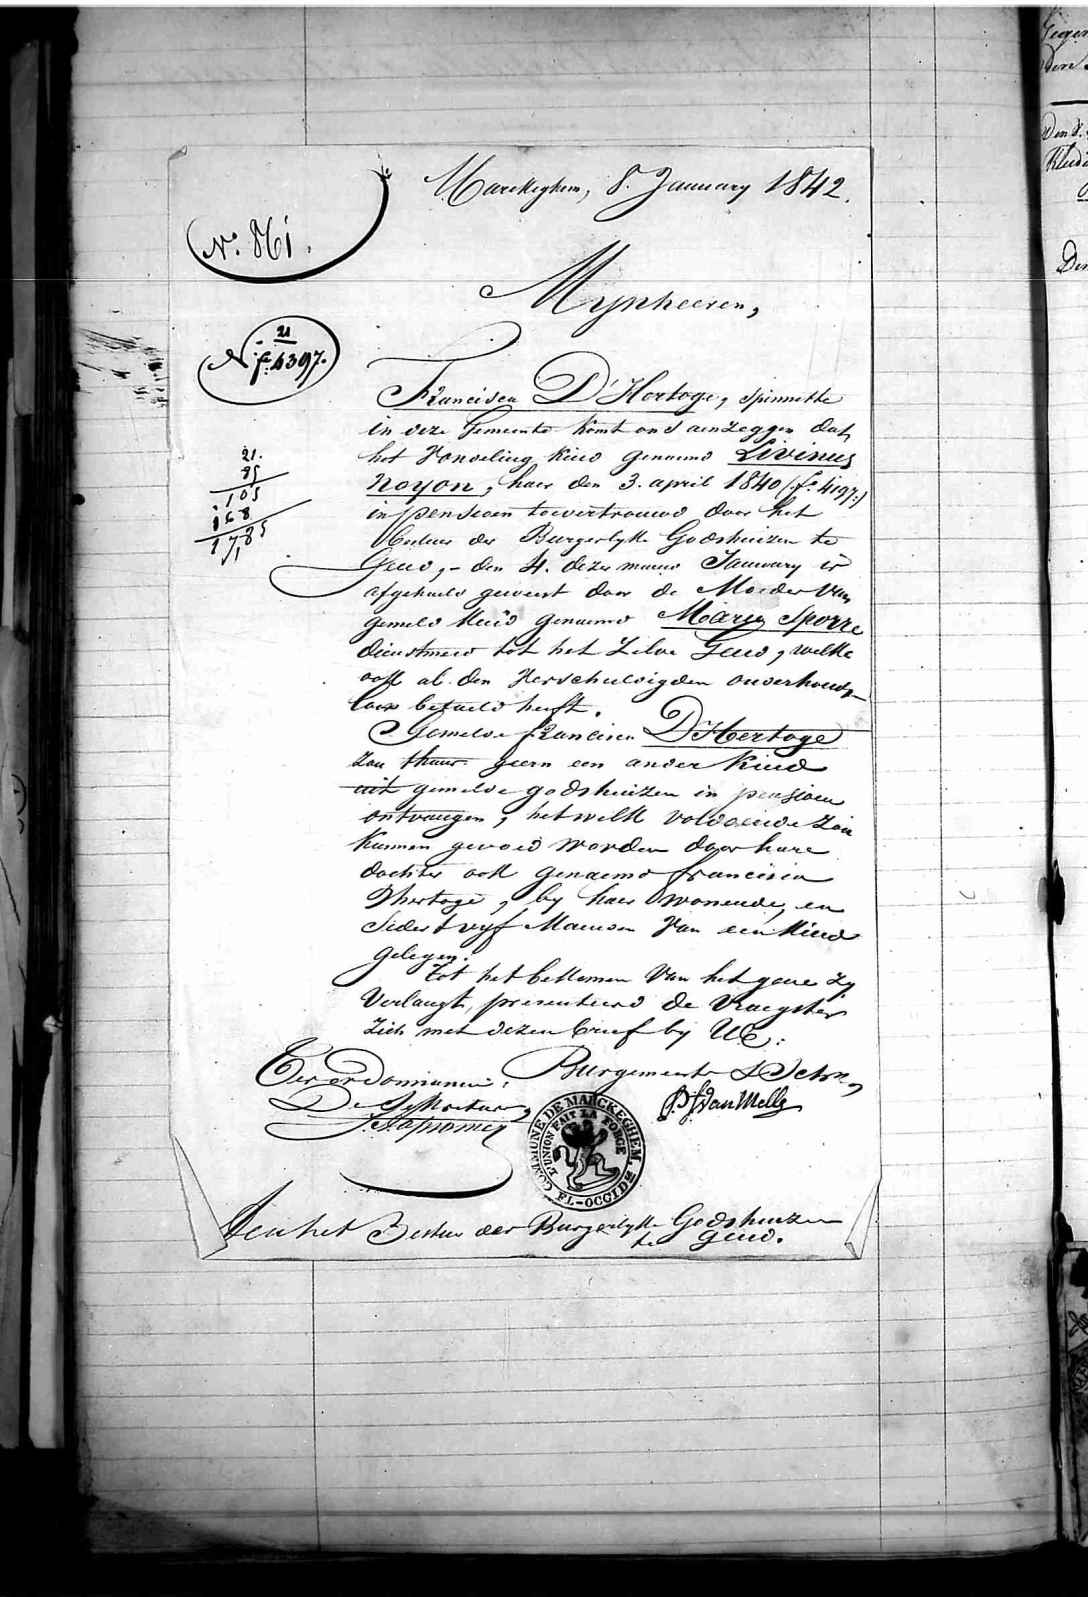 Marckeghem, 8. January 1842.
No. 861.
Mynheeren,
21
N. fo. 4397.
Francisca D'Hertoge, spinnetke
in deze Gemeente komt ons aenzeggen dat
het Vondeling kind genaemd Livinus
Noyon, haer den 3. april 1840 (fo. 4197:)
in pensioen toevertrouwd door het
Bestuer der Burgerlyke Godshuizen te
Gend, - den 4. dezer maend January is
afgehaeld geweest door de Moeder van
gemeld kind genaemd Marie Sporre
dienstmeid tot het zelve Gend, welke
ook al den verschuldigden onderhouds-
loon betaeld heeft.
Gemelde francisca D'Hertoge
zou thans geern een ander kind
uit gemelde godshuizen in pensioen
ontvangen, hetwelk voldoende zou
kunnen gevoed worden door hare
dochter ook genaemd francisca
Dhertoge, by haer wonende, en
sedert vyf Maenden van een kind
gelegen.
Tot het bekomen van het gene zy
verlangt, presenteerd de Vraegster
zich met dezen brief by UE:
21.
85
105
168
1785
Ter ordonnancie, Burgemeester & Schn.,
De Sekretaris,
P. J. Van Melle
COMMUNE DE MARCKEGHEM.
FL-OCCIDE
L'UNION FAIT LA FORCE
Aen het Bestuer der Burgerlyke Godshuizen
te Gend.